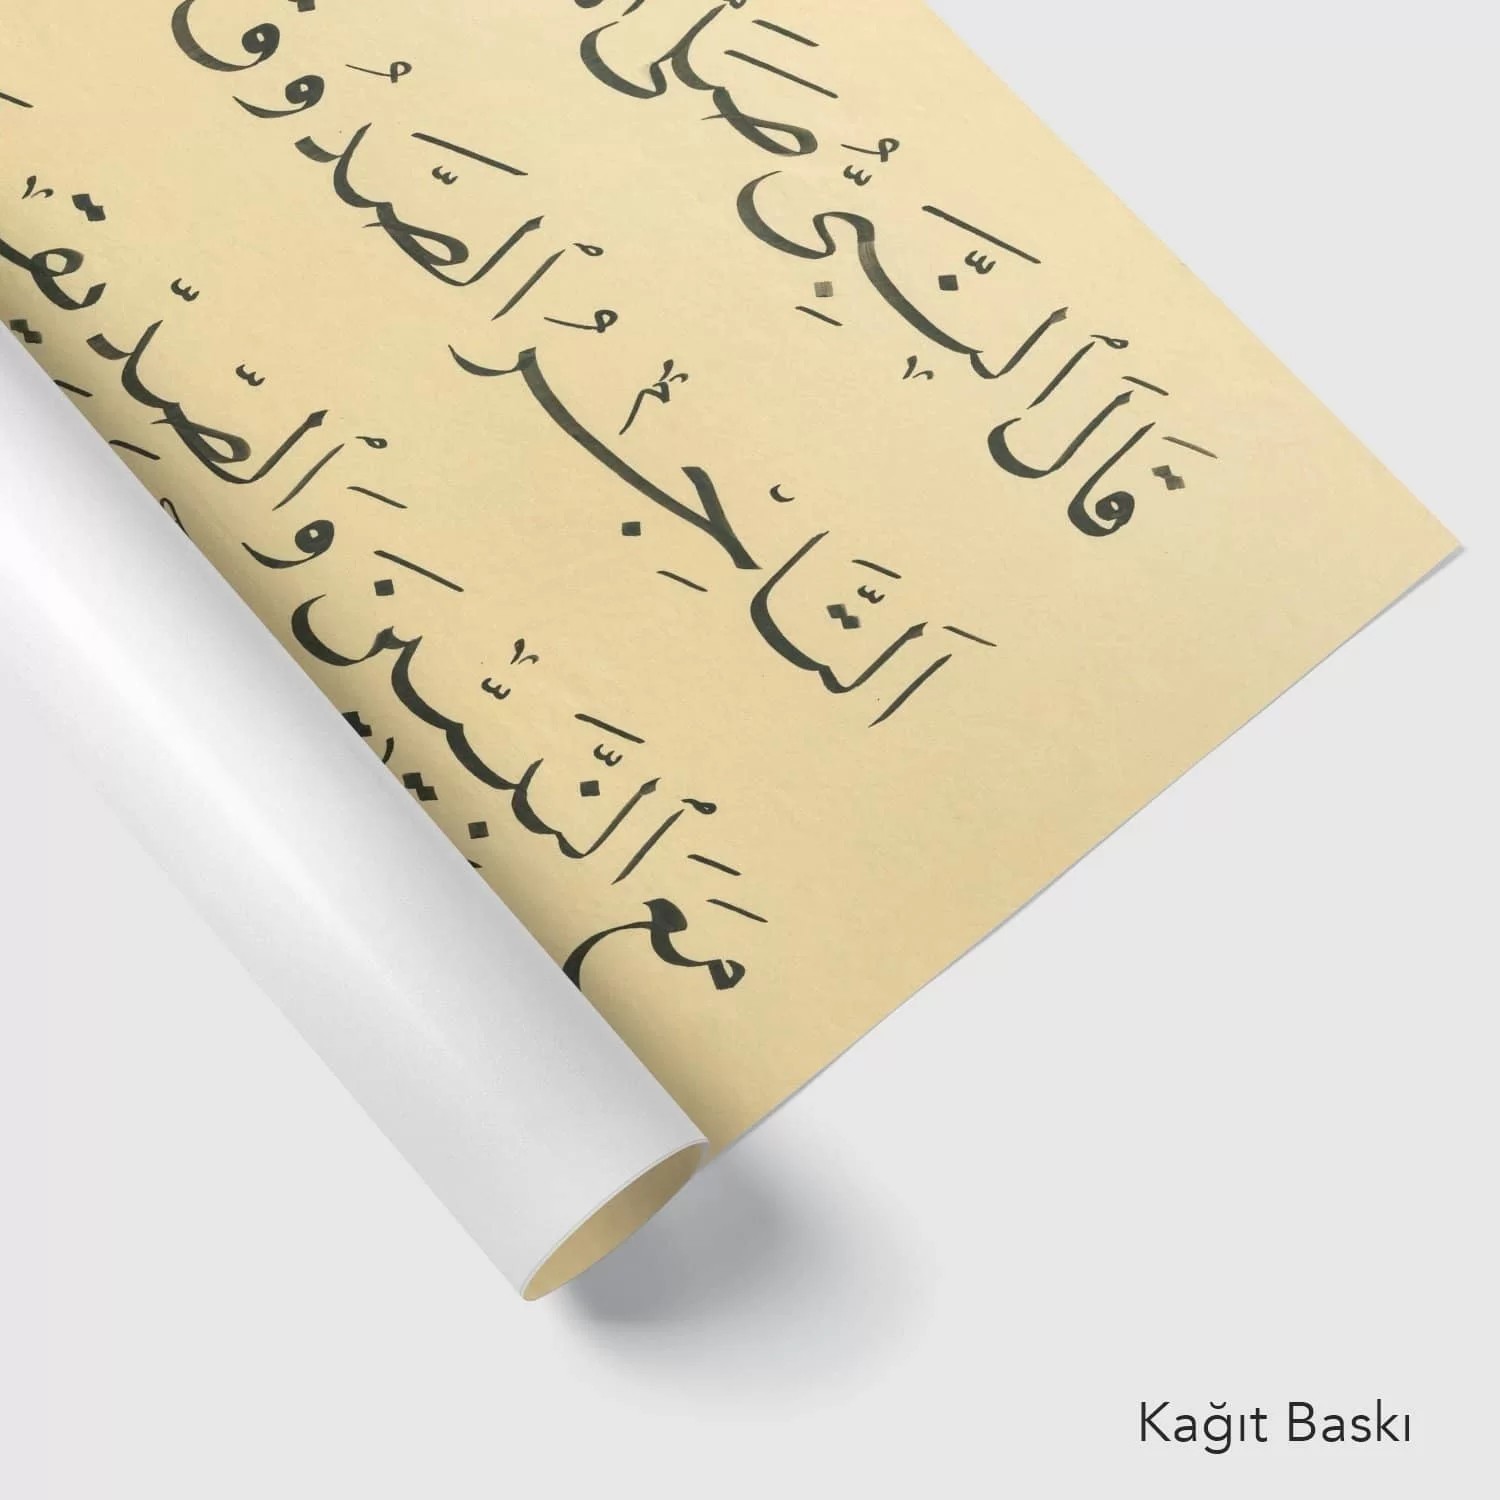 قَالَ ٱلنَّبِيُّ صَلَّى
اَلتَّاجِرُ ٱلصَّدُوقُ
مَعَ ٱلنَّبِيِّينَ وَٱلصِّدِّيقِينَ
Kağıt Baskı